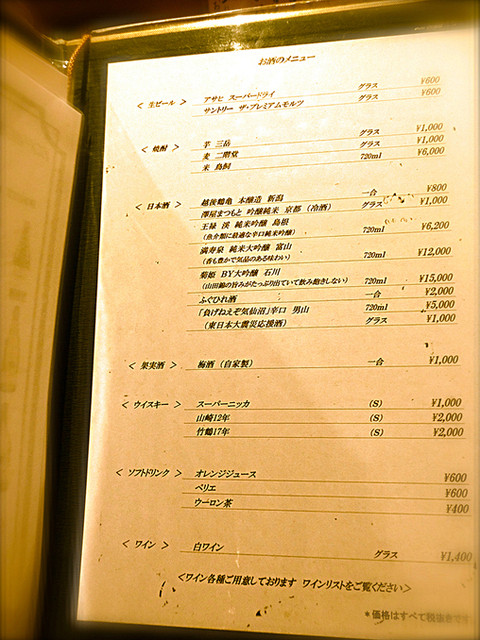 お酒のメニュー
＜ 生ビール ＞ アサヒ スーパードライ グラス ¥600
サントリー ザ・プレミアムモルツ グラス ¥600
＜ 焼酎 ＞ 芋 三岳 グラス ¥1,000
麦 二階堂 グラス ¥1,000
米 鳥飼 720ml ¥6,000
＜ 日本酒 ＞ 越後鶴亀 本醸造 新潟 一合 ¥800
澤屋まつもと 吟醸純米 京都 （冷酒） グラス ¥1,000
王緑 渓 純米吟醸 島根 720ml ¥6,200
（魚介類に最適な辛口純米吟醸）
満寿泉 純米大吟醸 富山 720ml ¥12,000
（香も豊かで気品のある味わい）
菊姫 BY大吟醸 石川 720ml ¥15,000
（山田錦の旨みがたっぷり出ていて飲み飽きしない）
ふぐひれ酒 一合 ¥2,000
「負げねえぞ気仙沼」辛口 男山 720ml ¥5,000
（東日本大震災応援酒） グラス ¥1,000
＜ 果実酒 ＞ 梅酒 （自家製） 一合 ¥1,000
＜ ウイスキー ＞ スーパーニッカ （S） ¥1,000
山崎12年 （S） ¥2,000
竹鶴17年 （S） ¥2,000
＜ ソフトドリンク ＞ オレンジジュース ¥600
ペリエ ¥600
ウーロン茶 ¥400
＜ ワイン ＞ 白ワイン グラス ¥1,400
＜ワイン各種ご用意しております ワインリストをご覧ください＞
＊価格はすべて税抜きです